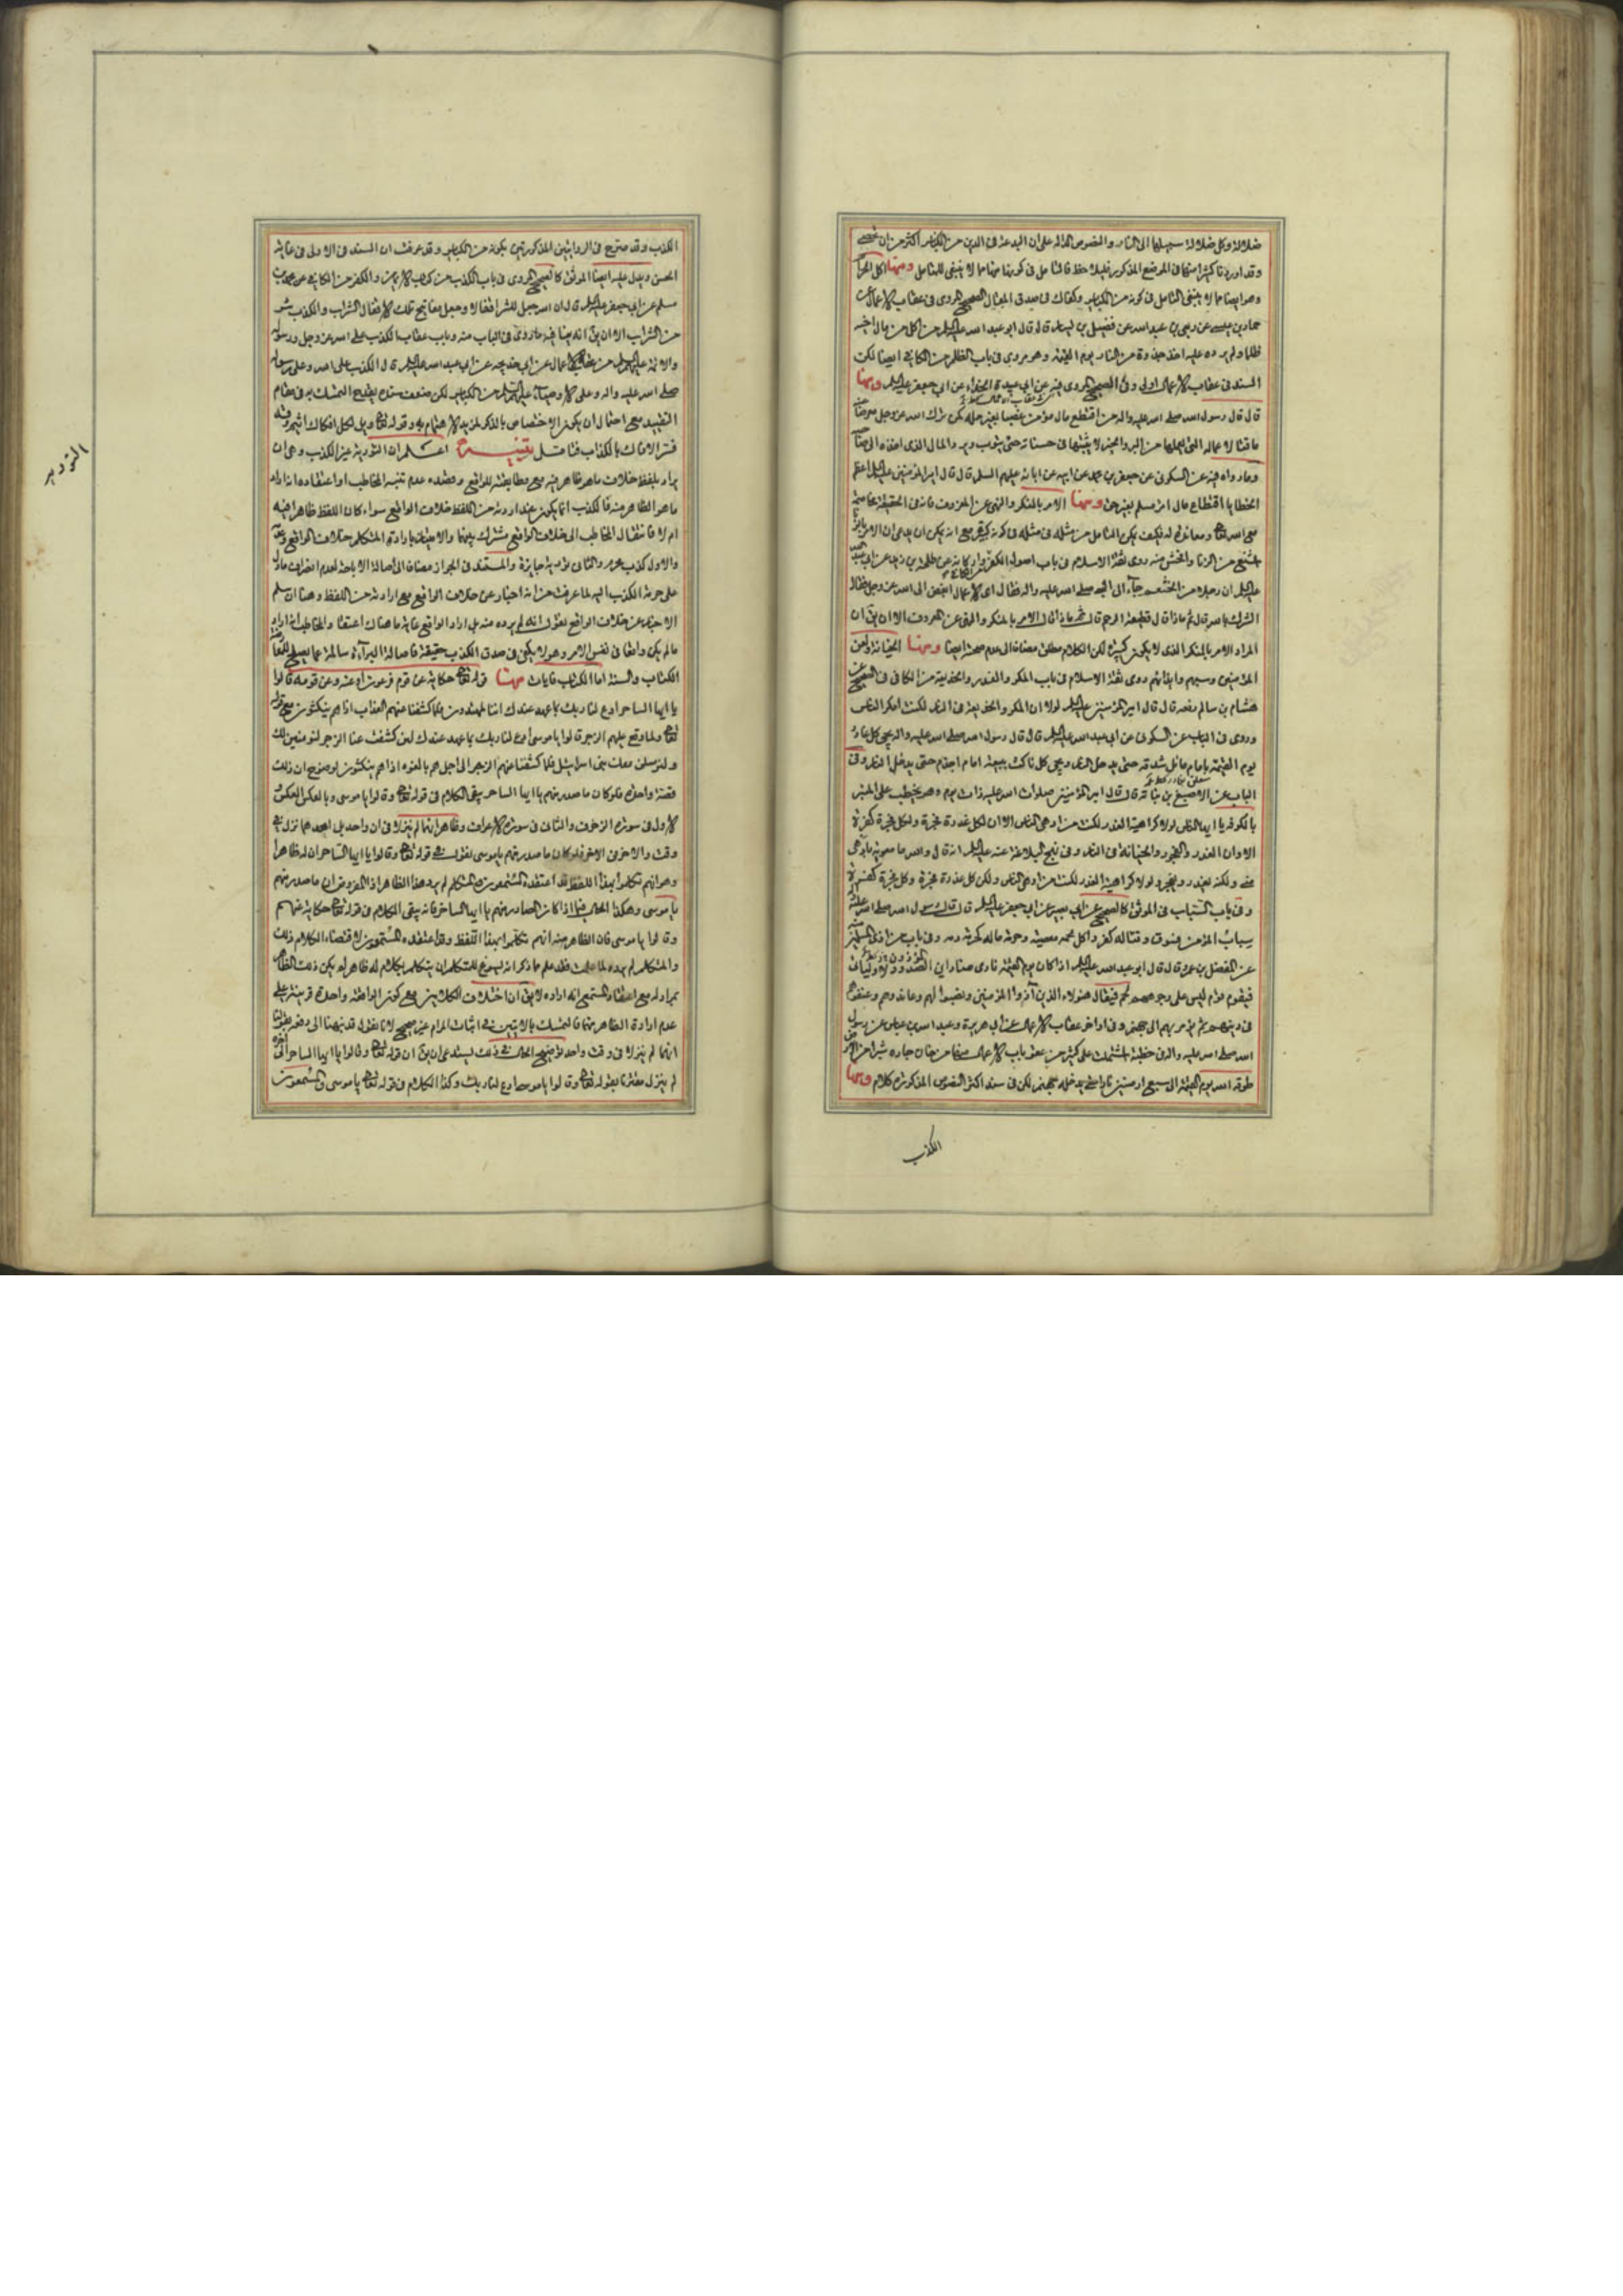 ضلالة وكل ضلالة سبيلها الى النار والنصوص الدالة على ان البدعة فى الدين من الكبائر اكثر من ان تحصى
وقد اوردنا كثيرا منها فى الموضع المذكور فليلاحظ فالتامل فى كونها منها مما لا ينبغى للمتامل ومنها اكل الحرام
وهو ايضا مما لا ينبغى التامل فى كونه من الكبائر وكفاك فى صدق المقال الصحيح المروى فى عقاب الاعمال عن
حماد بن عيسى عن ربعى بن عبد الله عن فضيل بن يسار قال قال ابو عبد الله عليه السلام من اكل من مال اخيه
ظلما ولم يرده عليه اخذ جذوة من النار يوم القيمة وهو مروى فى باب الظلم من الكافى ايضا لكن
السند فى عقاب الاعمال اولى وفى الصحيح المروى فيه عن ابى عبيدة الحذاء عن ابى جعفر عليه السلام ومنها
قال قال رسول الله صلى الله عليه واله من اقتطع مال مؤمن غصبا بغير حله لم يزل الله عز وجل معرضا عنه
ماقتا لاعماله التى يعملها من البر والخير لا يثبتها فى حسناته حتى يتوب ويرد المال الذى اخذه الى صاحبه
وما رواه فيه عن السكونى عن جعفر بن محمد عن ابيه عن ابائه عليهم السلم قال قال امير المؤمنين عليه السلام اعظم
الخطايا اقتطاع مال امرء مسلم بغير حق ومنها الامر بالمنكر والنهى عن المعروف فانه فى الحقيقة مخاصمة
مع الله تعالى ومعاندة له فكيف يمكن التامل من مثله فى مثله فى كونه كبيرة مع انه يمكن ان يدعى ان الامر بالزنا
اشنع من الزنا وافحش منه روى ثقة الاسلام فى باب اصول الكفر واركانه عن طلحة بن زيد عن ابى عبد الله
عليه السلام ان رجلا من الخثعم جاء الى النبى صلى الله عليه واله فقال اى الاعمال ابغض الى الله عز وجل فقال
الشرك بالله قال ثم ماذا قال قطيعة الرحم قال ثم ماذا قال الامر بالمنكر والنهى عن المعروف الا ان يق ان
المراد الامر بالمنكر الذى لا يكون كبيرة لكن الكلام مطلق مضافا الى عدم صحته ايضا ومنها الخيانة ولعن
المؤمنين وسبهم وايذائهم روى ثقة الاسلام فى باب المكر والغدر والخديعة من الكافى فى الصحيح عن
هشام بن سالم رفعه قال قال امير المؤمنين عليه السلام لولا ان المكر والخديعة فى النار لكنت امكر الناس
وروى فى الباب عن السكونى عن ابى عبد الله عليه السلام قال قال رسول الله صلى الله عليه واله يجئ كل غادر
يوم القيمة بامام مائل شدقه حتى يدخل النار ويجئ كل ناكث بيعة امام اجذم حتى يدخل النار وفى
الباب عن الاصبغ بن نباتة قال قال امير المؤمنين صلوات الله عليه ذات يوم وهو يخطب على المنبر
بالكوفة يا ايها الناس لولا كراهية الغدر لكنت من ادهى الناس الا ان لكل غدرة فجرة ولكل فجرة كفرة
الا وان الغدر والفجور والخيانة فى النار وفى نهج البلاغة عنه عليه السلام انه قال والله ما معوية بادهى
منى ولكنه يغدر ويفجر ولولا كراهية الغدر لكنت من ادهى الناس ولكن كل غدرة فجرة وكل فجرة كفرة
وفى باب السباب فى الموثق كالصحيح عن ابى بصير عن ابى جعفر عليه السلام قال قال رسول الله صلى الله عليه واله
سباب المؤمن فسوق وقتاله كفر واكل لحمه معصية وحرمة ماله كحرمة دمه وفى باب من اذى المسلمين
عن المفضل بن عمر قال قال ابو عبد الله عليه السلام اذا كان يوم القيمة نادى مناد اين الصدود لاوليائى
فيقوم قوم ليس على وجوههم لحم فيقال هؤلاء الذين آذوا المؤمنين ونصبوا لهم وعاندوهم وعنفوهم
فى دينهم ثم يؤمر بهم الى جهنم وفى اواخر عقاب الاعمال عن ابى هريرة وعبد الله بن عباس عن رسول
الله صلى الله عليه واله فى خطبة اشتملت على كثير من عقاب الاعمال منها من خان جاره شبرا من الارض
طوقه الله يوم القيمة الى سبع ارضين نارا حتى يدخله جهنم لكن فى سند اكثر النصوص المذكورة كلام ومنها
الكذب
الكذب وقد صرح فى الروايتين المذكورتين بكونه من الكبائر وقد عرفت ان السند فى الاولى فى غاية
الحسن ويدل عليه ايضا الموثق كالصحيح المروى فى باب الكذب من كتاب الايمان والكفر من الكافى عن محمد بن
مسلم عن ابى جعفر عليه السلام قال ان الله جعل للشر اقفالا وجعل مفاتيح تلك الاقفال الشراب والكذب شر
من الشراب الا ان يق انه ينافيه ما روى فى الباب منه وباب عقاب الكذب على الله عز وجل ورسوله
والائمة عليهم السلام من عقاب الاعمال عن ابى خديجة عن ابى عبد الله عليه السلام قال الكذب على الله وعلى رسوله
صلى الله عليه واله وعلى الاوصياء عليهم السلام من الكبائر لكن ضعف سنده يقدح التمسك به فى مقام
التقييد مع احتمال ان يكون الاختصاص بالذكر لمزيد الاهتمام به وقوله تعالى ويل لكل افاك اثيم وقد
فسر الافاك بالكذاب فتامل تنبيه اعلم ان التورية غير الكذب وهى ان
يراد بلفظ خلاف ما هو ظاهر فيه مع مطابقته للواقع وقصده عدم تنبه المخاطب او اعتقاده اذا اراد
ما هو الظاهر منه فالكذب انما يكون عند ارادته من اللفظ خلاف الواقع سواء كان اللفظ ظاهرا فيه
ام لا فانتقال المخاطب الى خلاف الواقع مشترك بينهما والامتياز بارادة المتكلم خلاف الواقع وعدمه
والاول كذب محرم والثانى تورية جايزة والمستند فى الجواز مضافا الى اصالة الاباحة لعدم انصراف ما دل
على حرمة الكذب اليه لما عرفت من انه اخبار عن خلاف الواقع مع ارادته من اللفظ وهنا ان سلم
الاخبار عن خلاف الواقع نقول انه لم يرده منه بل اراد الواقع غاية ما هناك اعتقاد المخاطب انه اراد منه
ما لم يكن واقعا فى نفس الامر وهو لا يكفى فى صدق الكذب حقيقة فاصالة البراءة سالمة عما يصلح للمعارضة
الكتاب والسنة اما الكتاب فايات منها قوله تعالى حكاية عن قوم فرعون او عنه وعن قومه قالوا
يا ايها الساحر ادع لنا ربك بما عهد عندك اننا لمهتدون فلما كشفنا عنهم العذاب اذا هم ينكثون مع قوله
تعالى ولما وقع عليهم الرجز قالوا يا موسى ادع لنا ربك بما عهد عندك لئن كشفت عنا الرجز لنؤمنن لك
ولنرسلن معك بنى اسرائيل فلما كشفنا عنهم الرجز الى اجل هم بالغوه اذا هم ينكثون لوضوح ان ذلك
قصة واحدة فلو كان ما صدر منهم يا ايها الساحر يبقى الكلام فى قوله تعالى وقالوا يا موسى وبالعكس العكس
الاول فى سورة الزخرف والثانى فى سورة الاعراف وظاهر انهما لم ينزلا فى ان واحد بل احدهما نزل فى
وقت والاخر فى الاخر فلو كان ما صدر منهم يا موسى نقول فى قوله تعالى وقالوا يا ايها الساحر ان له ظاهرا
وهو انهم تكلموا بهذا اللفظ قد اعتقده المستمعون والمتكلم لم يرد هذا الظاهر اذ المفروض ان ما صدر منهم
يا موسى وهكذا الحال فيما اذا كان الصادر منهم يا ايها الساحر فانه يبقى الكلام فى قوله تعالى حكاية عنهم
وقالوا يا موسى فان الظاهر منه انهم تكلموا بهذا اللفظ وقد اعتقده المستمعون لاقتضاء الكلام ذلك
والمتكلم لم يرده لما علمت فقد علم مما ذكر انه يسوغ للمتكلم ان يتكلم بكلام له ظاهر لم يكن ذلك الظاهر
مراد له مع اعتقاد المستمع انه اراده لا يق ان اختلاف الكلامين مع كون الواقعة واحدة قرينة على
عدم ارادة الظاهر منهما فالتمسك بالايتين فى اثبات المرام غير صحيح لانا نقول قد نبهنا الى دفعه بقولنا
انهما لم ينزلا فى وقت واحد توضيح الحال فى ذلك يستدعى ان يق ان قوله تعالى وقالوا يا ايها الساحر الى آخره
لم ينزل مقترنا بقوله تعالى وقالوا يا موسى ادع لنا ربك وكذا الكلام فى قوله تعالى يا موسى والمستمعون
التورية